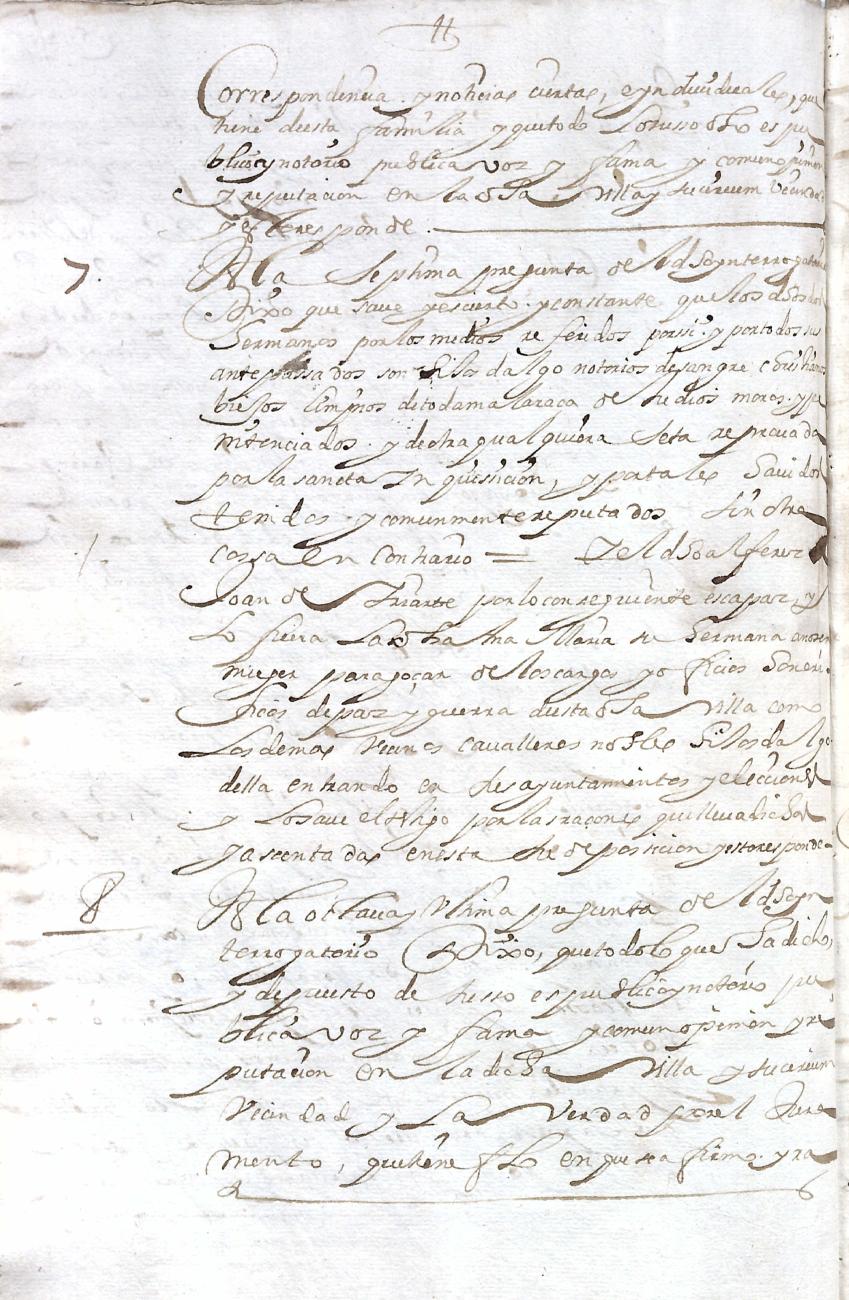 Correspondencia y noticias ciertas, e yndividuales, que
tiene de esta familia y que todo lo susso dho es pu
blico y notorio publica voz y fama y comun opinion
y reputacion en la dha Villa y su circum vecindad
y esto responde
7. A la septima pregunta del dho ynterrogatorio
Dixo que save y es cierto y constante que los dhos dos
hermanos por los medios referidos por ssi y por todos sus
antepassados son hijos dalgo notorios de sangre christianos
biejos limpios de toda mala raça de judios moros y pe
nitenciados y de otra qualquiera seta reprovada
por la sancta Inquissicion, y por tales havidos
tenidos y comunmente reputados sin otra
cossa en contrario = Y el dho alferez
Joan de Yriarte por lo conseguiente es capaz, y
lo fuera la dha Ana Maria su hermana a no ser
muger para goçar de los cargos y officios honori
ficos de paz y guerra de esta dha Villa como
los demas vecinos cavalleros nobles hijos dalgo
della entrando en sus ayuntamientos y elecciones
y lo save el testigo por las raçones que lleva dichas
y assentadas en esta su deposicion y esto responde
8 A la ottava y ultima pregunta del dho yn
terrogatorio Dixo, que todo lo que ha dicho,
y depuesto de susso es publico y notorio pu
blica voz y fama y comun opinion y re
putacion en la dicha Villa y su circum
vecindad y la verdad por el Jura
mento, que tiene fho en que se a firmo y ra